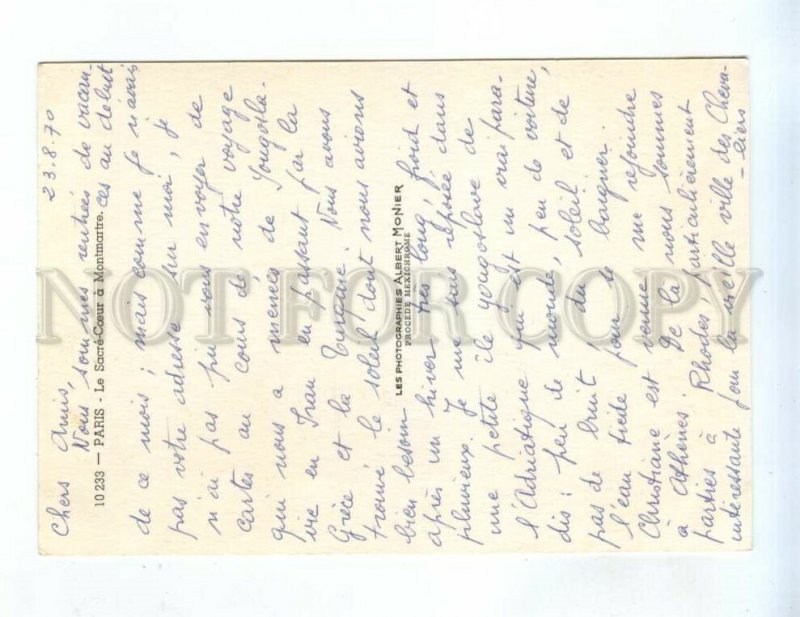 23.8.70
Chers Amis,
Nous sommes rentrées de vacan-
10 233 — PARIS - Le Sacré-Cœur à Montmartre.
ces au début
de ce mois ; mais comme je n'avais
pas votre adresse sur moi, je
n'ai pas pu vous envoyer de
cartes au cours de notre voyage
qui nous a menées de Yougosla-
vie en Iran en passant par la
Grèce et la Turquie. Nous avons
trouvé le soleil dont nous avions
bien besoin
LES PHOTOGRAPHIES ALBERT MONIER
PROCÉDÉ MEXICHROME
après un hiver très long, froid et
pluvieux. Je me suis reposée dans
une petite île yougoslave de
l'Adriatique qui est un vrai para-
dis : peu de monde, peu de voiture,
pas de bruit du soleil et de
l'eau tiède pour se baigner.
Christiane est venue me rejoindre
à Athènes. De la nous sommes
parties à Rhodes, particulièrement
intéressante pour la vieille ville des Cheva-
-liers
NOT FOR COPY